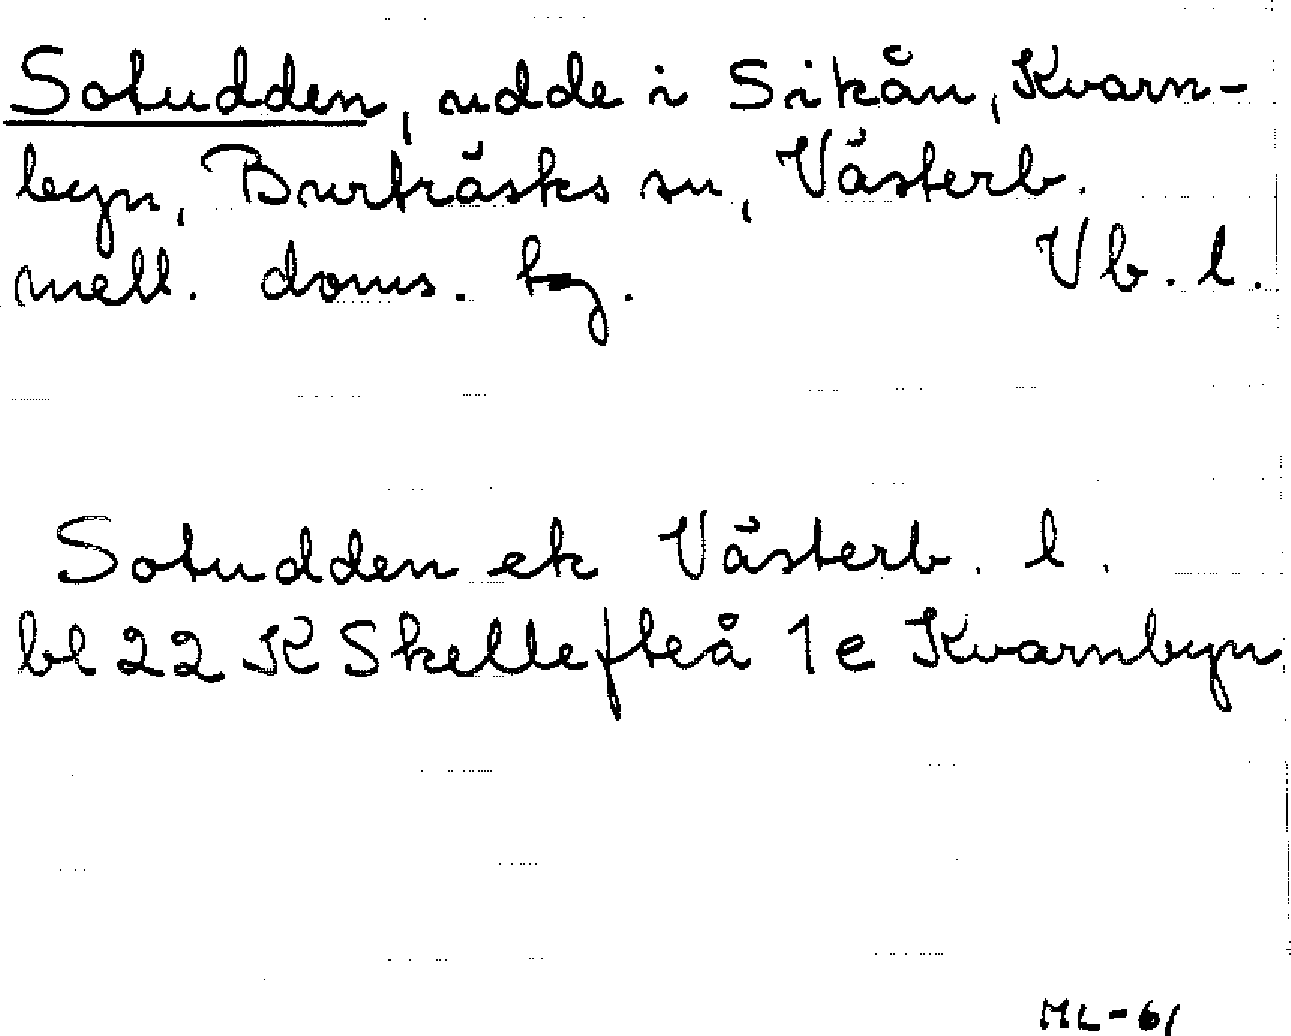 Sotudden, udde i Sikån, Kvarn-
byn, Burträsks sn, Västerb.
mell. doms. tg. Vb. l.
Sotudden ek Västerb. l.
bl 22 K Skellefteå 1e Kvarnbyn
ML-61